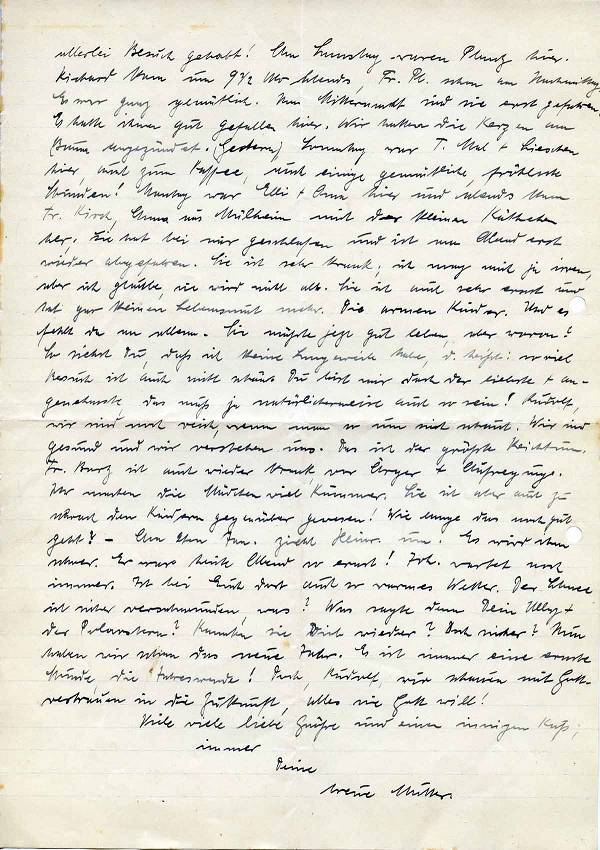 allerlei Besuch gehabt! Am Samstag waren Plautz hier.
Richard kam um 9½ Uhr abends, Fr. Pl. schon am Nachmittag.
Es war ganz gemütlich. Um Mitternacht sind sie erst gefahren.
Es hatte ihnen gut gefallen hier. Wir hatten die Kerzen am
Baum angezündet. Gestern, Sonntag war T. Mal + Lieschen
hier, auch zum Kaffee, auch einige gemütliche, fröhliche
Stunden! Montag war Elli + Oma hier und abends kam
Fr. Kirch, Anna aus Mülheim mit der kleinen Käthchen
her. Sie hat bei mir geschlafen und ist am Abend erst
wieder abgefahren. Sie ist sehr krank; ich mag mich ja irren,
aber ich glaube, sie wird nicht alt. Sie ist auch sehr ernst und
hat gar keinen Lebensmut mehr. Die armen Kinder. Und es
fehlt da an allem. Sie müßte jetzt gut leben, aber wovon?
So siehst Du, daß ich keine Langeweile habe, d. heißt: so viel
Besuch ist auch nicht schön. Du bist mir doch der liebste + an-
genehmste, das muß ja natürlicherweise auch so sein! Rudolf,
wir sind noch reich, wenn man so um sich schaut. Wir sind
gesund und wir verstehen uns. Das ist der größte Reichtum.
Fr. Barz ist auch wieder krank vor Ärger + Aufregung.
Ihr machen die Mädchen viel Kummer. Sie ist aber auch zu
schwach den Kindern gegenüber gewesen! Wie lange das noch gut
geht? – Am 2ten Jan. zieht Heinr. um. Es wird ihm
schwer. Er war heute Abend so ernst! Joh. wartet noch
immer. Ist bei Euch dort auch so warmes Wetter. Der Schnee
ist sicher verschwunden, was? Was sagte denn Dein Ully +
der Polarstern? Kannten sie Dich wieder? Doch sicher? Nun
haben wir schon das neue Jahr. Es ist immer eine ernste
Stunde, die Jahreswende! Doch, Rudolf, wir schauen mit Gott-
vertrauen in die Zukunft, alles wie Gott will!
Viele viele liebe Grüße und einen innigen Kuß,
immer
Deine
treue Mutter.